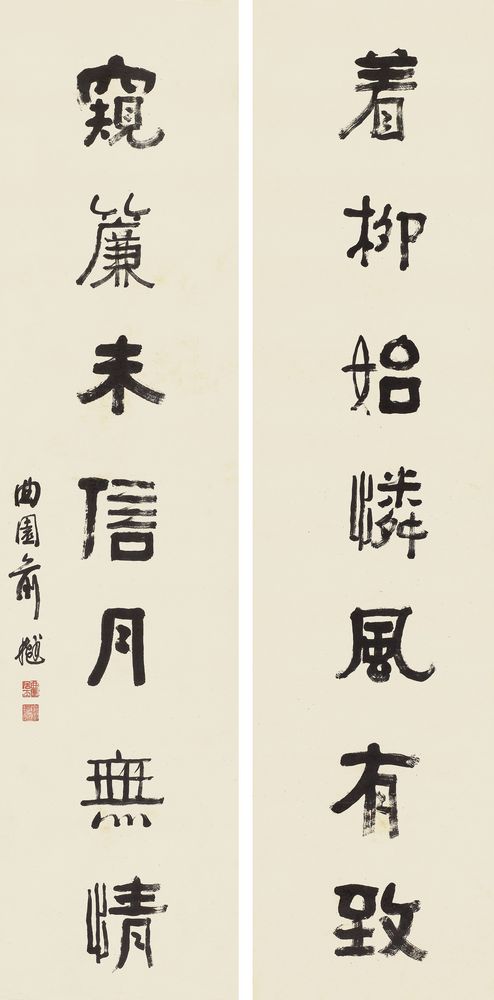 着柳始憐風有致
窺簾未信月無情
曲園俞樾